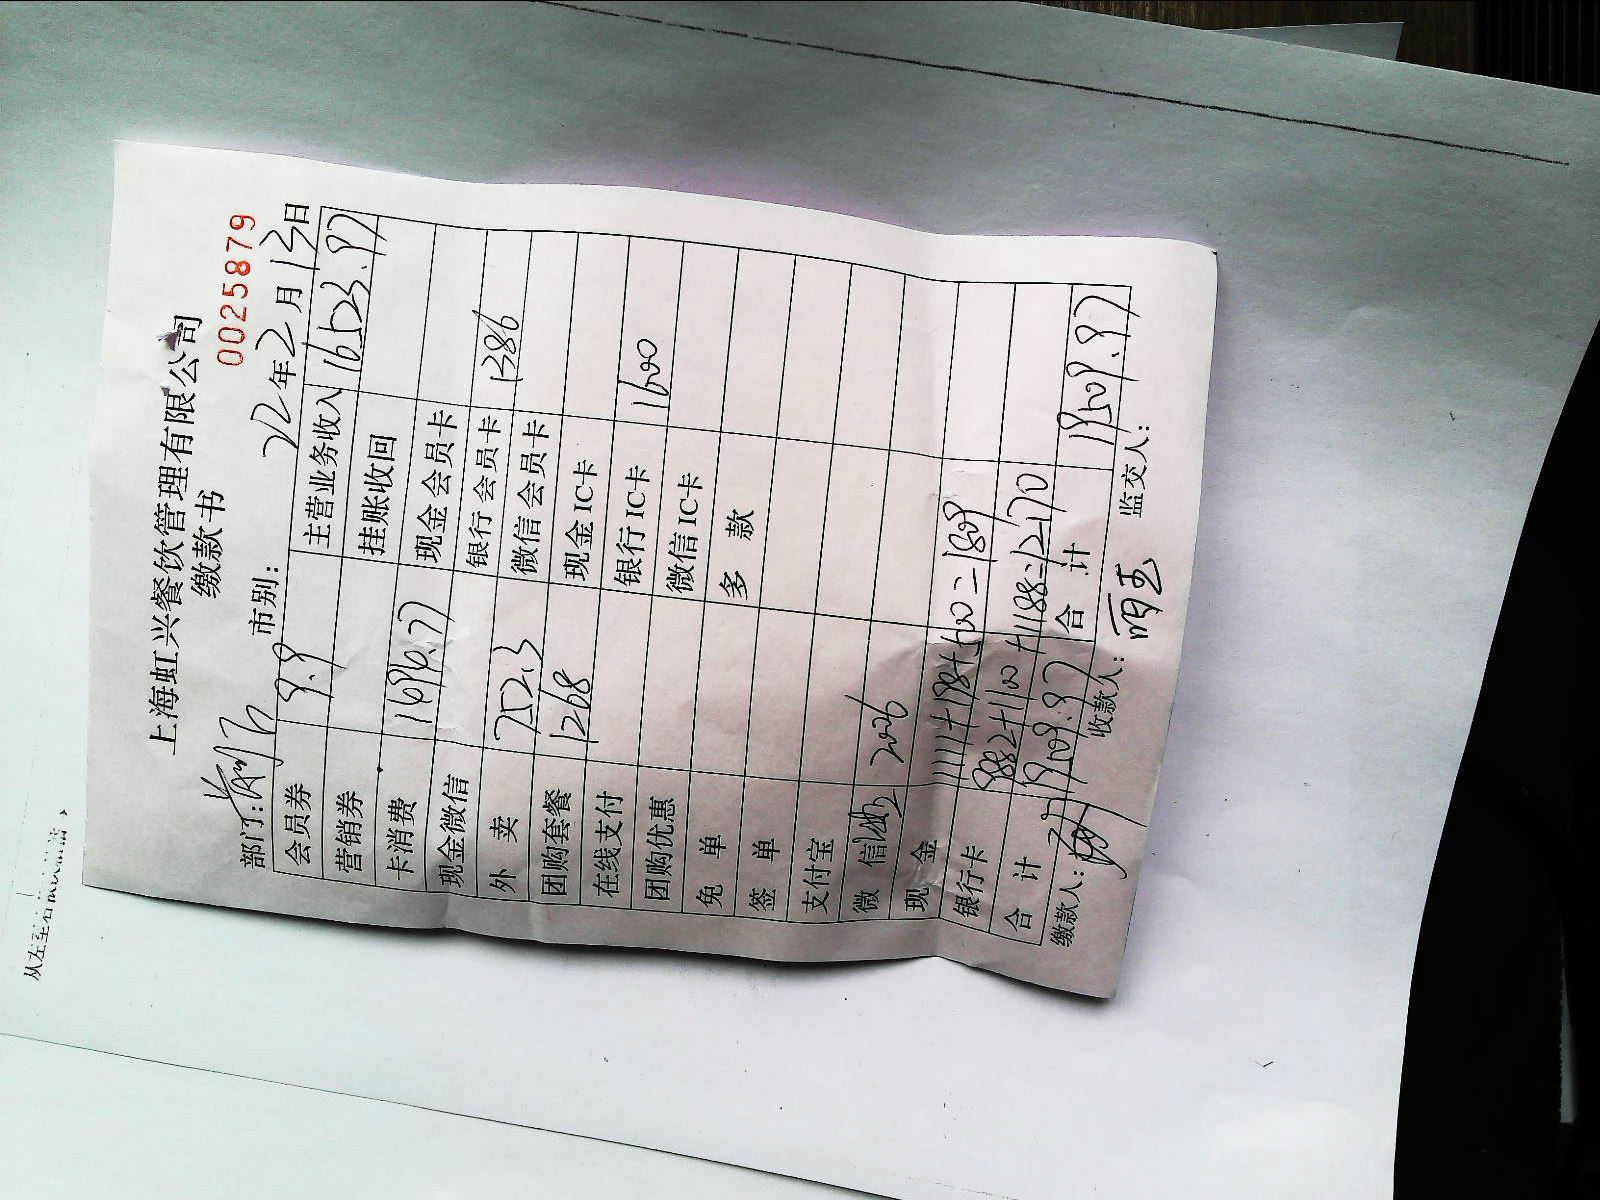 上海虹兴餐饮管理有限公司
缴款书
0025879
部门: 市别: 22年2月13日
会员券 9.9 主营业务收入 16523.97
营销券 挂账收回
卡消费 1694.77 现金会员卡
现金微信 银行会员卡 1386
外卖 252.3 微信会员卡
团购套餐 1268 现金IC卡
在线支付 银行IC卡 1600
团购优惠 微信IC卡
免单 多款
签单
支付宝
微信 2006
现金 1111+198+500=1809
银行卡 9882+1100+1188=12170
合计 19509.97 合计 19509.97
缴款人: 收款人: 监交人: